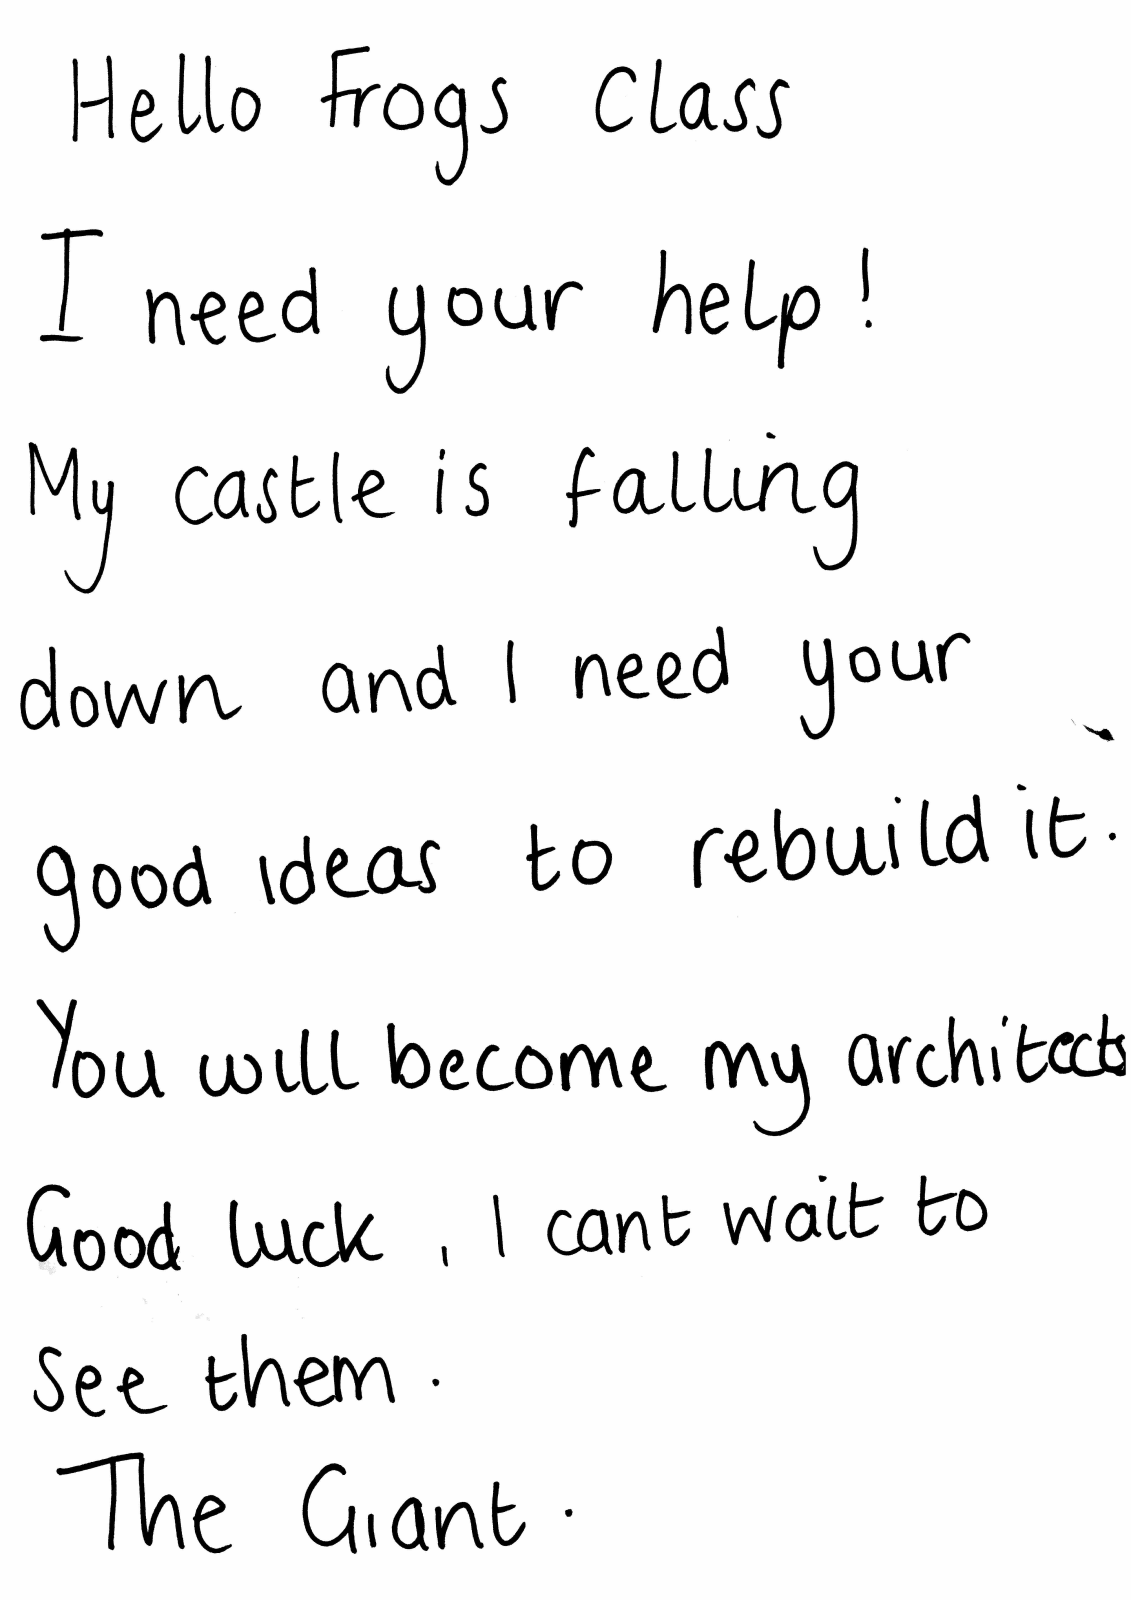 Hello Frogs Class
I need your help!
My castle is falling
down and I need your
good ideas to rebuild it.
You will become my architects
Good luck, I cant wait to
see them.
The Giant.